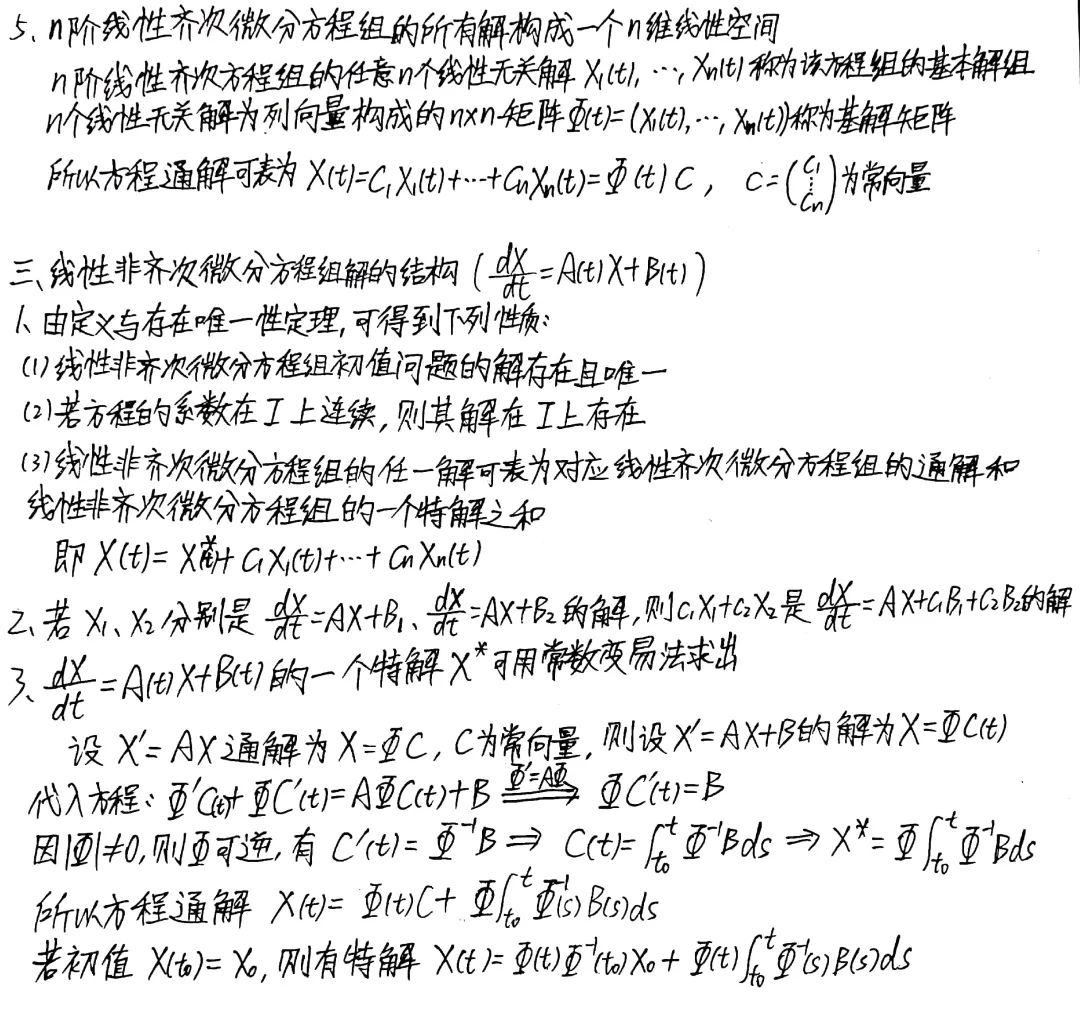 5、n阶线性齐次微分方程组的所有解构成一个n维线性空间
n阶线性齐次方程组的任意n个线性无关解 X₁(t), ⋯, Xn(t) 称为该方程组的基本解组
n个线性无关解为列向量构成的n×n矩阵Φ(t)=(X₁(t), ⋯, Xn(t))称为基解矩阵
所以方程通解可表为 X(t)=C₁X₁(t)+⋯+CnXn(t)=Φ(t)C, C=(C₁ ⋮ Cn)为常向量
三、线性非齐次微分方程组解的结构 (dX/dt=A(t)X+B(t))
1、由定义与存在唯一性定理,可得到下列性质:
(1)线性非齐次微分方程组初值问题的解存在且唯一
(2)若方程的系数在I上连续,则其解在I上存在
(3)线性非齐次微分方程组的任一解可表为对应线性齐次微分方程组的通解和
线性非齐次微分方程组的一个特解之和
即 X(t)= X特+ C₁X₁(t)+⋯+ CnXn(t)
2、若 X₁、X₂分别是 dX/dt=AX+B₁、dX/dt=AX+B₂的解,则C₁X₁+C₂X₂是 dX/dt=AX+C₁B₁+C₂B₂的解
3、dX/dt=A(t)X+B(t)的一个特解X*可用常数变易法求出
设 X'=AX通解为X=ΦC, C为常向量, 则设X'=AX+B的解为X=ΦC(t)
代入方程: Φ'C(t)+ΦC'(t)=AΦC(t)+B ⟹(Φ'=AΦ) ΦC'(t)=B
因|Φ|≠0,则Φ可逆,有 C'(t)=Φ⁻¹B ⇒ C(t)=∫_{t₀}^{t}Φ⁻¹Bds ⇒ X*=Φ∫_{t₀}^{t}Φ⁻¹Bds
所以方程通解 X(t)= Φ(t)C+Φ∫_{t₀}^{t}Φ⁻¹(s)B(s)ds
若初值 X(t₀)=X₀, 则有特解 X(t)=Φ(t)Φ⁻¹(t₀)X₀+Φ(t)∫_{t₀}^{t}Φ⁻¹(s)B(s)ds